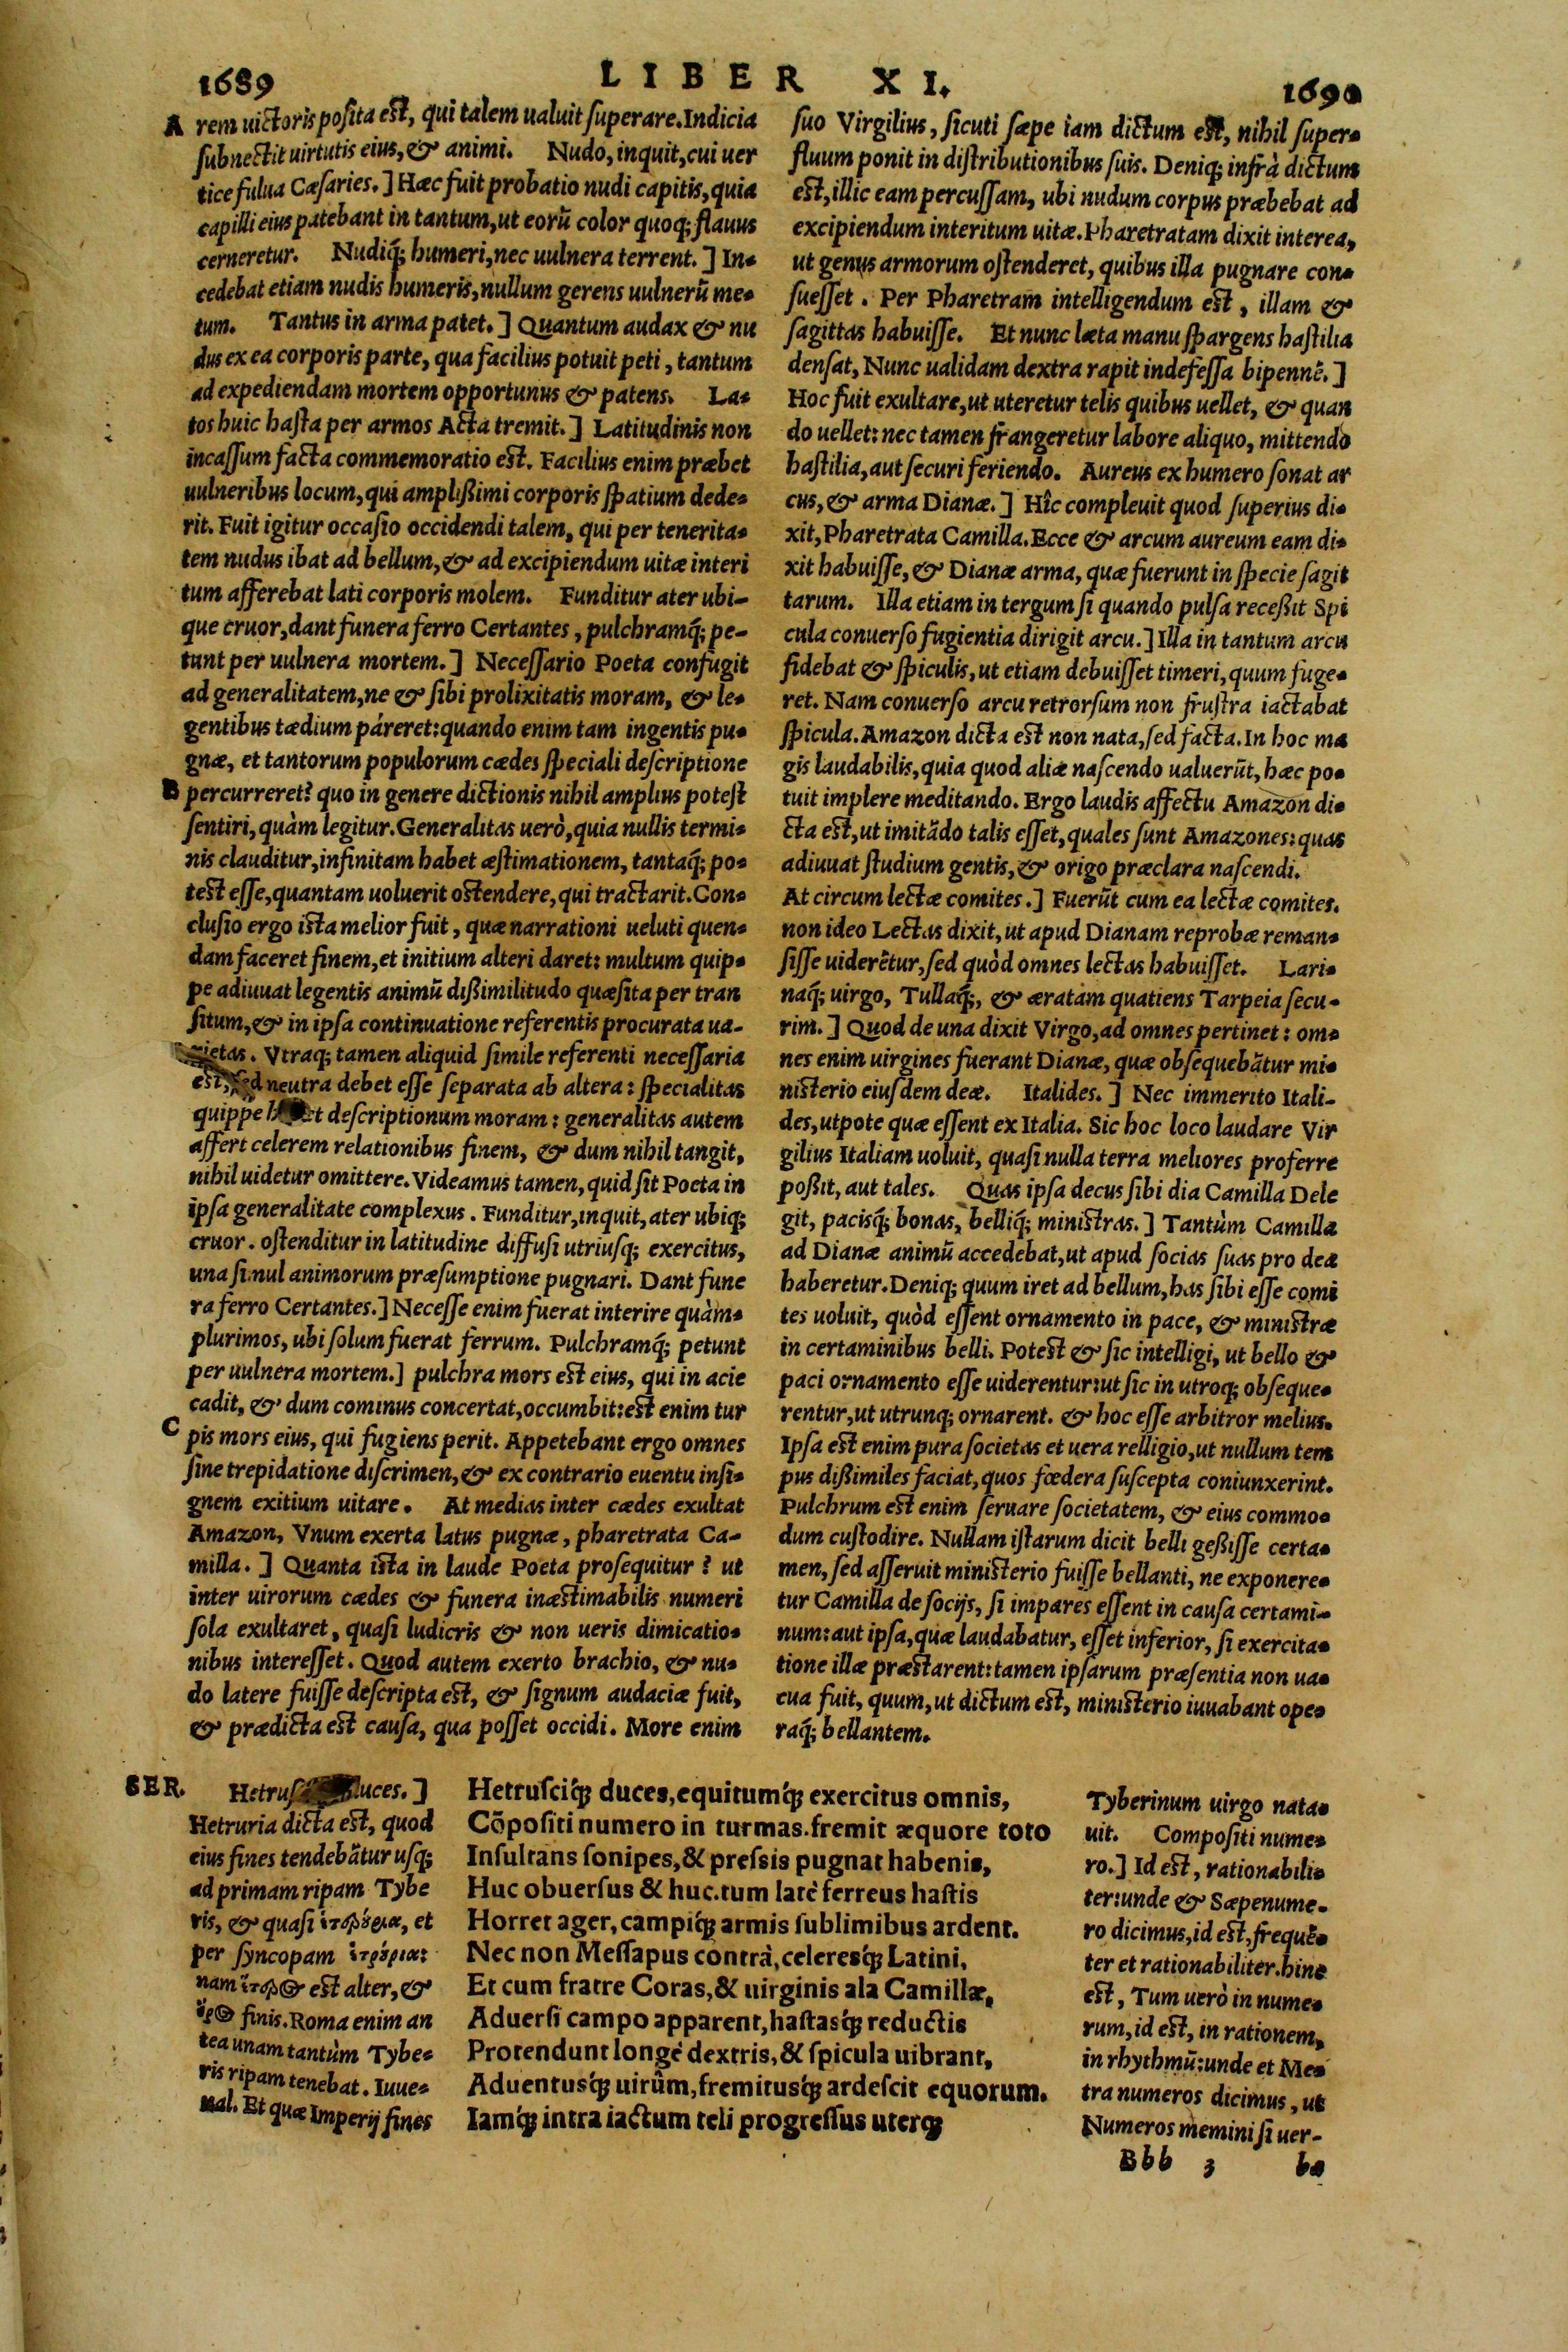 1689 LIBER XI. 1690
A rem uictoris posita est, qui talem ualuit superare. Indicia
subnectit uirtutis eius, & animi. Nudo, inquit, cui uer
tice fulua Cæsaries.] Hæc fuit probatio nudi capitis, quia
capilli eius patebant in tantum, ut eorū color quoq; flauus
cerneretur. Nudiq́; humeri, nec uulnera terrent.] In-
cedebat etiam nudis humeris, nullum gerens uulnerū me-
tum. Tantus in arma patet.] Quantum audax & nu
dus ex ea corporis parte, qua facilius potuit peti, tantum
ad expediendam mortem opportunus & patens. La-
tos huic hasta per armos Acta tremit.] Latitudinis non
incassum facta commemoratio est. Facilius enim præbet
uulneribus locum, qui amplißimi corporis spatium dede-
rit. Fuit igitur occasio occidendi talem, qui per tenerita-
tem nudus ibat ad bellum, & ad excipiendum uitæ interi
tum afferebat lati corporis molem. Funditur ater ubi-
que cruor, dant funera ferro Certantes, pulchramq́; pe-
tunt per uulnera mortem.] Necessario Poeta confugit
ad generalitatem, ne & sibi prolixitatis moram, & le-
gentibus tædium páreret: quando enim tam ingentis pu-
gnæ, et tantorum populorum cædes speciali descriptione
B percurreret? quo in genere dictionis nihil amplius potest
sentiri, quàm legitur. Generalitas uerò, quia nullis termi-
nis clauditur, infinitam habet æstimationem, tantaq́; po-
test esse, quantam uoluerit ostendere, qui tractarit. Con-
clusio ergo ista melior fuit, quæ narrationi ueluti quen-
dam faceret finem, et initium alteri daret: multum quip-
pe adiuuat legentis animū dißimilitudo quæsita per tran
situm, & in ipsa continuatione referentis procurata ua-
rietas. Vtraq; tamen aliquid simile referenti necessaria
est, sed neutra debet esse separata ab altera: specialitas
quippe descriptionum moram: generalitas autem
affert celerem relationibus finem, & dum nihil tangit,
nihil uidetur omittere. Videamus tamen, quid sit Poeta in
ipsa generalitate complexus. Funditur, inquit, ater ubiq;
cruor. ostenditur in latitudine diffusi utriusq; exercitus,
una simul animorum præsumptione pugnari. Dant fune
ra ferro Certantes.] Necesse enim fuerat interire quàm-
plurimos, ubi solum fuerat ferrum. Pulchramq́; petunt
per uulnera mortem.] pulchra mors est eius, qui in acie
cadit, & dum cominus concertat, occumbit: est enim tur
C pis mors eius, qui fugiens perit. Appetebant ergo omnes
sine trepidatione discrimen, & ex contrario euentu insi-
gnem exitium uitare. At medias inter cædes exultat
Amazon, Vnum exerta latus pugnæ, pharetrata Ca-
milla.] Quanta ista in laude Poeta prosequitur? ut
inter uirorum cædes & funera inæstimabilis numeri
sola exultaret, quasi ludicris & non ueris dimicatio-
nibus interesset. Quod autem exerto brachio, & nu-
do latere fuisse descripta est, & signum audaciæ fuit,
& prædicta est causa, qua posset occidi. More enim
suo Virgilius, sicuti sæpe iam dictum est, nihil super-
fluum ponit in distributionibus suis. Deniq; infrà dictum
est, illic eam percussam, ubi nudum corpus præbebat ad
excipiendum interitum uitæ. Pharetratam dixit interea,
ut genus armorum ostenderet, quibus illa pugnare con-
suesset. Per Pharetram intelligendum est, illam &
sagittas habuisse. Et nunc læta manu spargens hastilia
densat, Nunc ualidam dextra rapit indefessa bipennē.]
Hoc fuit exultare, ut uteretur telis quibus uellet, & quan
do uellet: nec tamen frangeretur labore aliquo, mittendo
hastilia, aut securi feriendo. Aureus ex humero sonat ar
cus, & arma Dianæ.] Hîc compleuit quod superius di-
xit, Pharetrata Camilla. Ecce & arcum aureum eam di-
xit habuisse, & Dianæ arma, quæ fuerunt in specie sagit
tarum. Illa etiam in tergum si quando pulsa receßit Spi
cula conuerso fugientia dirigit arcu.] Illa in tantum arcu
fidebat & spiculis, ut etiam debuisset timeri, quum fuge-
ret. Nam conuerso arcu retrorsum non frustra iactabat
spicula. Amazon dicta est non nata, sed facta. In hoc ma
gis laudabilis, quia quod aliæ nascendo ualuerūt, hæc po-
tuit implere meditando. Ergo laudis affectu Amazon di-
cta est, ut imitādo talis esset, quales sunt Amazones: quas
adiuuat studium gentis, & origo præclara nascendi.
At circum lectæ comites.] Fuerūt cum ea lectæ comites.
non ideo Lectas dixit, ut apud Dianam reprobæ reman-
sisse uiderētur, sed quòd omnes lectas habuisset. Lari-
naq́; uirgo, Tullaq́;, & æratam quatiens Tarpeia secu-
rim.] Quod de una dixit Virgo, ad omnes pertinet: om-
nes enim uirgines fuerant Dianæ, quæ obsequebātur mi-
nisterio eiusdem deæ. Italides.] Nec immerito Itali-
des, utpote quæ essent ex Italia. Sic hoc loco laudare Vir
gilius Italiam uoluit, quasi nulla terra meliores proferre
poßit, aut tales. Quas ipsa decus sibi dia Camilla Dele
git, pacisq́; bonas, belliq́; ministras.] Tantùm Camilla
ad Dianæ animū accedebat, ut apud socias suas pro dea
haberetur. Deniq; quum iret ad bellum, has sibi esse comi
tes uoluit, quòd essent ornamento in pace, & ministræ
in certaminibus belli. Potest & sic intelligi, ut bello &
paci ornamento esse uiderentur: ut sic in utroq; obseque-
rentur, ut utrunq; ornarent. & hoc esse arbitror melius.
Ipsa est enim pura societas et uera relligio, ut nullum tem
pus dißimiles faciat, quos fœdera suscepta coniunxerint.
Pulchrum est enim seruare societatem, & eius commo-
dum custodire. Nullam istarum dicit belli geßisse certa-
men, sed asseruit ministerio fuisse bellanti, ne exponere-
tur Camilla de socijs, si impares essent in causa certami-
num: aut ipsa, quæ laudabatur, esset inferior, si exercita-
tione illæ præstarent: tamen ipsarum præsentia non ua-
cua fuit, quum, ut dictum est, ministerio iuuabant ope-
raq́; bellantem.
SER. duces.]
Hetruria dicta est, quod
eius fines tendebātur usq;
ad primam ripam Tybe
ris, & quasi ἑτερούρια, et
per syncopam ἑτρούρια:
nam ἕτερος est alter, &
ὅρος finis. Roma enim an
tea unam tantùm Tybe-
ris ripam tenebat. Iuue-
nal. Et quæ Imperij fines
Hetrusciq́; duces, equitumq́; exercitus omnis,
Cōpositi numero in turmas. fremit æquore toto
Insultans sonipes, & pressis pugnat habenis,
Huc obuersus & huc. tum latè ferreus hastis
Horret ager, campiq́; armis sublimibus ardent.
Nec non Messapus contrà, celeresq́; Latini,
Et cum fratre Coras, & uirginis ala Camillæ,
Aduersi campo apparent, hastasq́; reductis
Protendunt longè dextris, & spicula uibrant,
Aduentusq́; uirûm, fremitusq́; ardescit equorum.
Iamq́; intra iactum teli progressus uterq;
Tyberinum uirgo nata-
uit. Compositi nume-
ro.] Id est, rationabili-
ter: unde & Sæpenume-
ro dicimus, id est, frequē-
ter et rationabiliter. hinc
est, Tum uerò in nume-
rum, id est, in rationem,
in rhythmū: unde et Me-
tra numeros dicimus, ut
Numeros memini si uer-
Bbb 3 ba